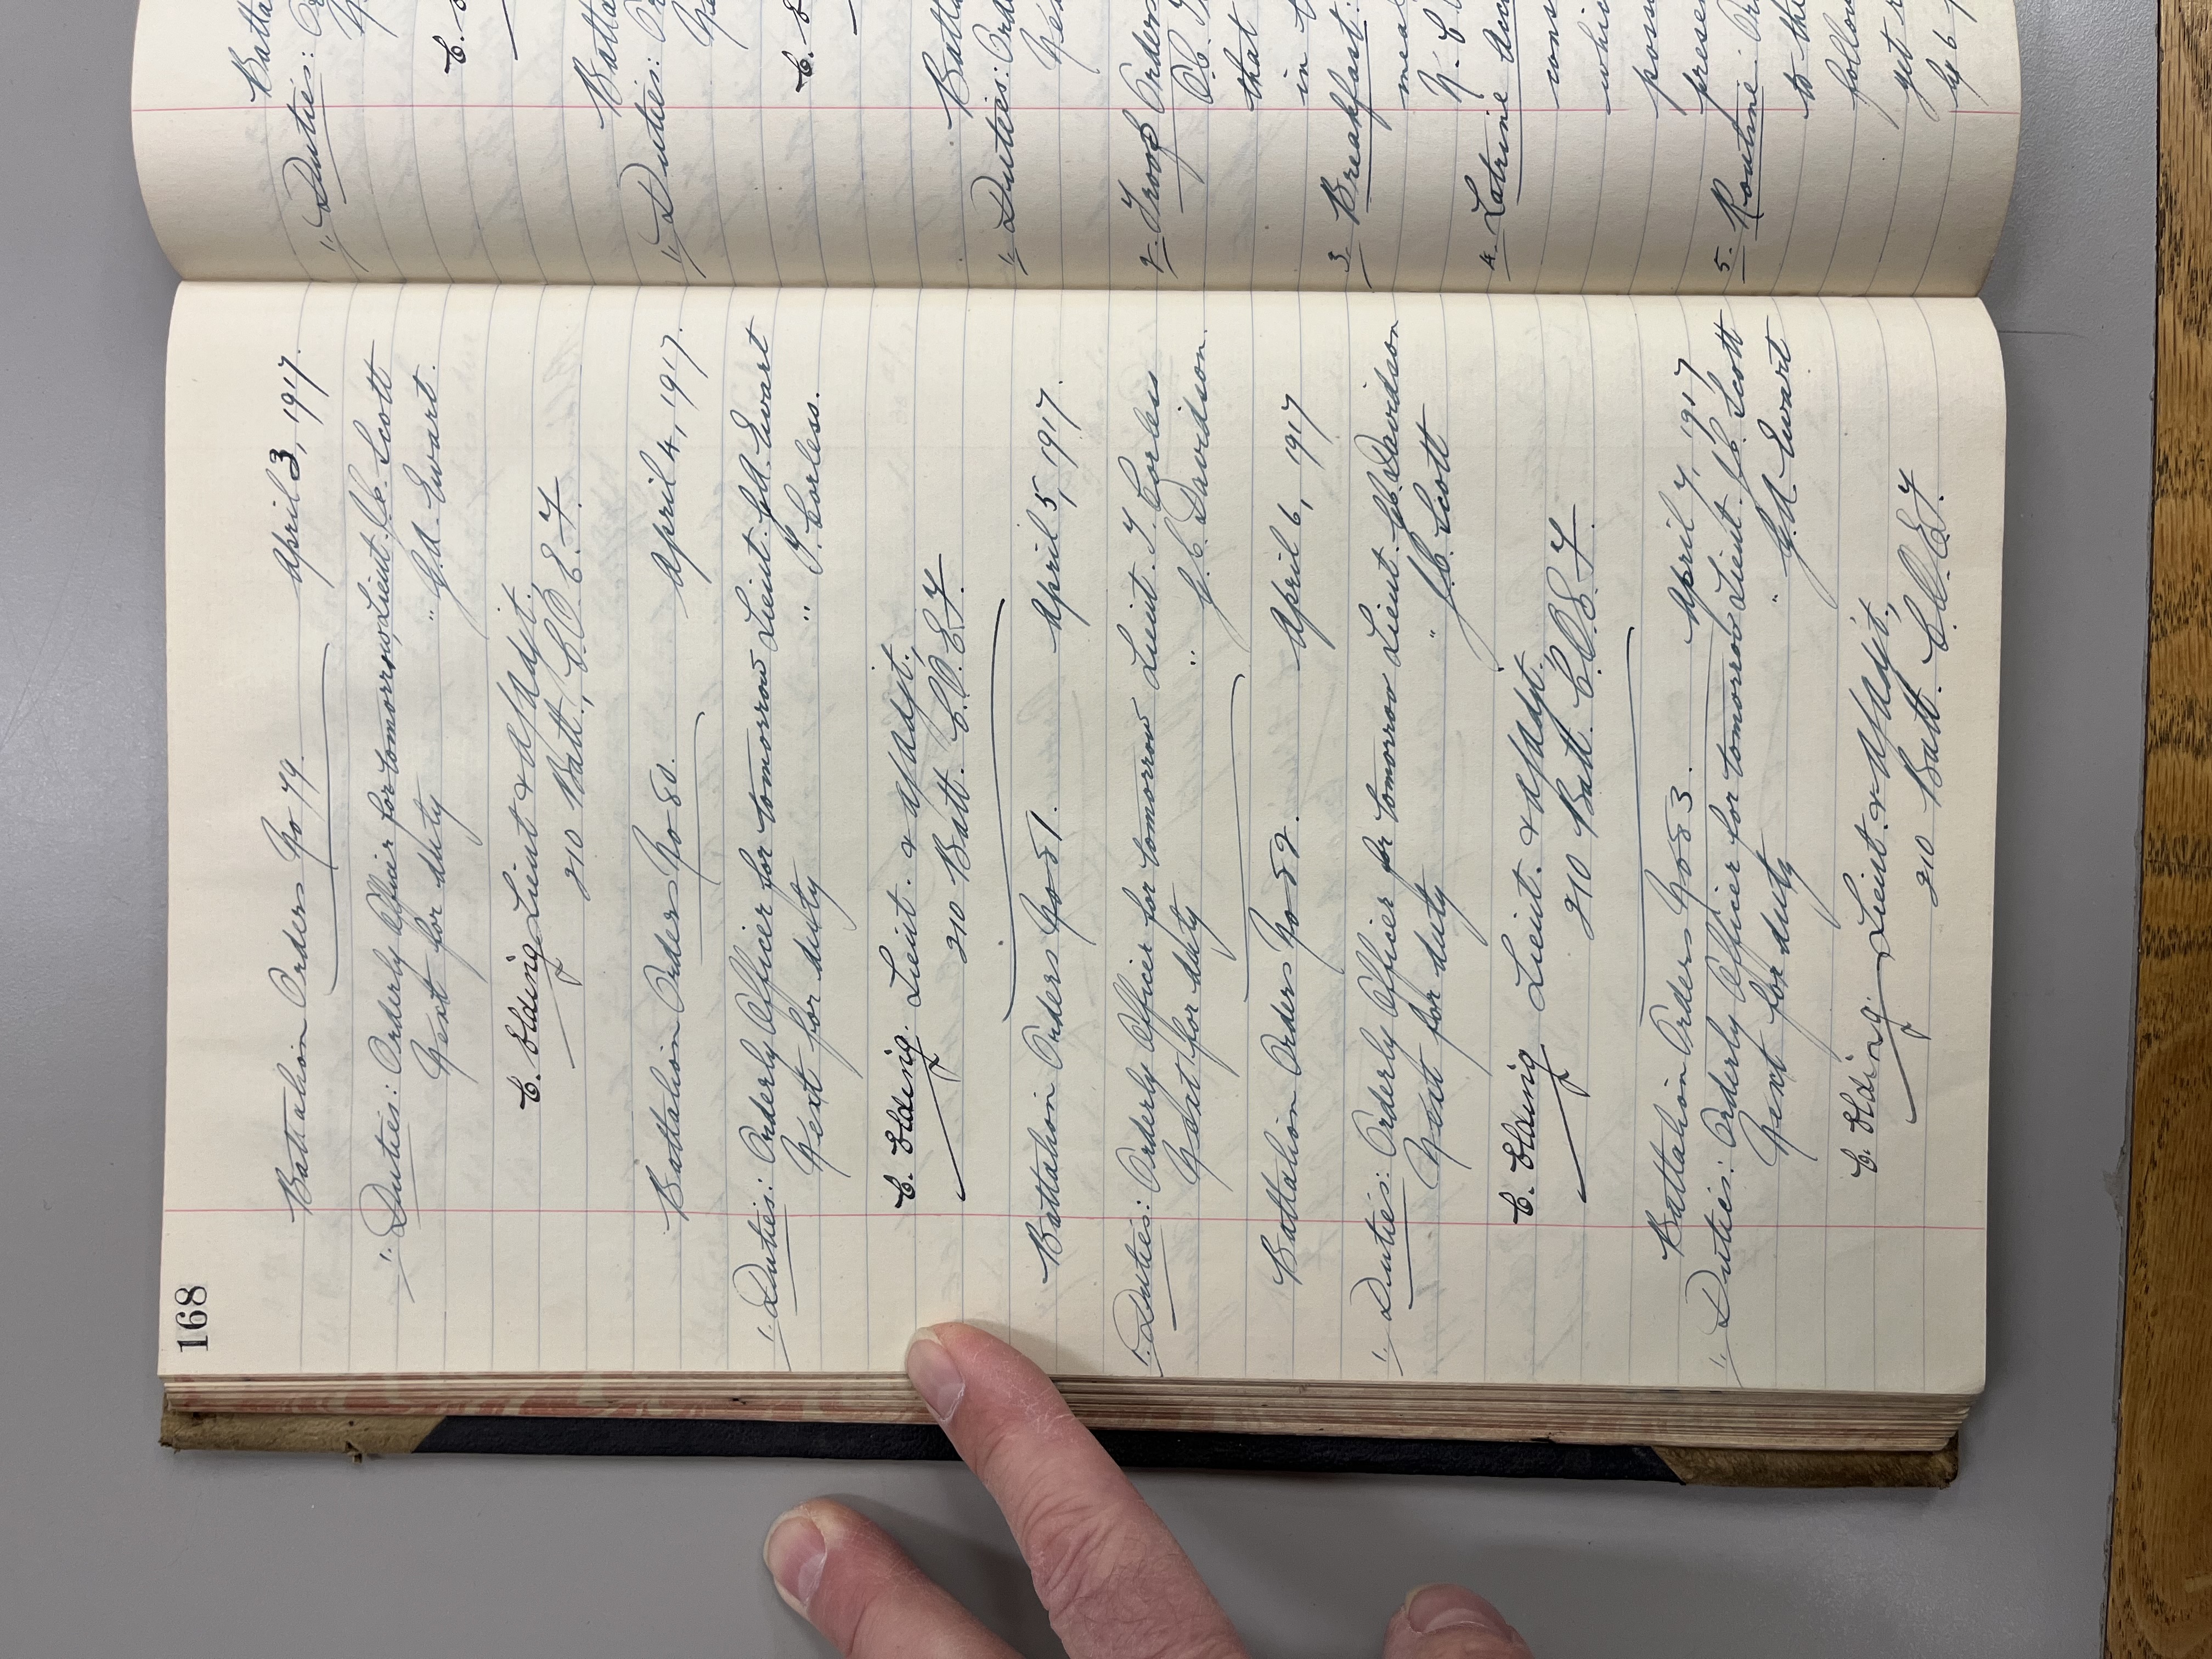 168
Battalion Orders No 79. April 3, 1917.
1. Duties: Orderly Officer for tomorrow Lieut. J.C. Scott
Next for duty " G.A. Ewart.
C. Elding Lieut & A/Adjt.
210 Batt., C.O.E.F.
Battalion Orders No 80. April 4, 1917.
1. Duties: Orderly Officer for tomorrow Lieut. G.A. Ewart
Next for duty " T. Corless.
C. Elding. Lieut. & A/Adjt.,
210 Batt. C.O.E.F.
Battalion Orders No 81. April 5, 1917.
1. Duties: Orderly Officer for tomorrow Lieut. T. Corless
Next for duty " G.C. Davidson.
Battalion Orders No 82. April 6, 1917
1. Duties: Orderly Officer for tomorrow Lieut. G.C. Davidson
Next for duty " J.C. Scott
C. Elding Lieut. & A/Adjt.
210 Batt. C.O.E.F.
Battalion Orders No 83. April 7, 1917
1. Duties: Orderly Officer for tomorrow Lieut. J.C. Scott
Next for duty " G.A. Ewart
C. Elding. Lieut. & A/Adjt.,
210 Batt. C.O.E.F.
Batta
1. Duties: O
Ne
C. E
Batta
1. Duties: Or
Ne
C. E
Batta
1. Duties: Ord
Ne
2. Troop Orders
O.C.
that
in t
3. Breakfast:
meal
N.
4. Latrine Acc
cons
which
posi
prese
5. Routine: Or
to the
follow
get r
by 6